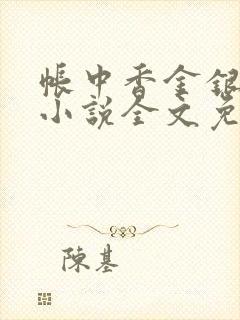 帳中香金銀
小說全文免
陳基